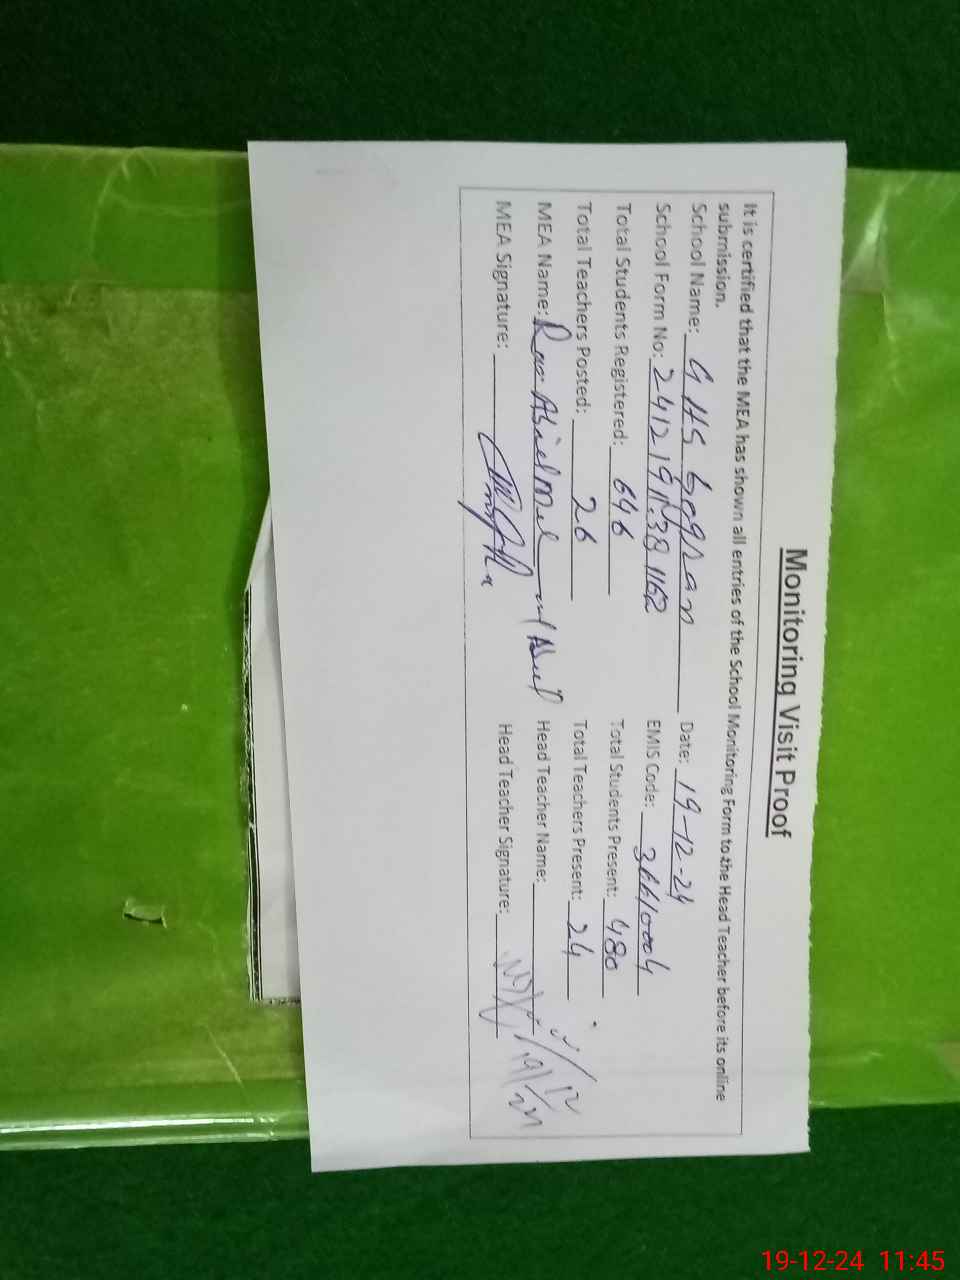 Monitoring Visit Proof
It is certified that the MEA has shown all entries of the School Monitoring Form to the Head Teacher before its online
submission.
School Name: GHS Gogran Date: 19-12-24
School Form No: EMIS Code: 36610004
Total Students Registered: 646 Total Students Present: 480
Total Teachers Posted: 26 Total Teachers Present: 24
MEA Name: Rao Head Teacher Name:
MEA Signature: Head Teacher Signature:
19-12-24 11:45